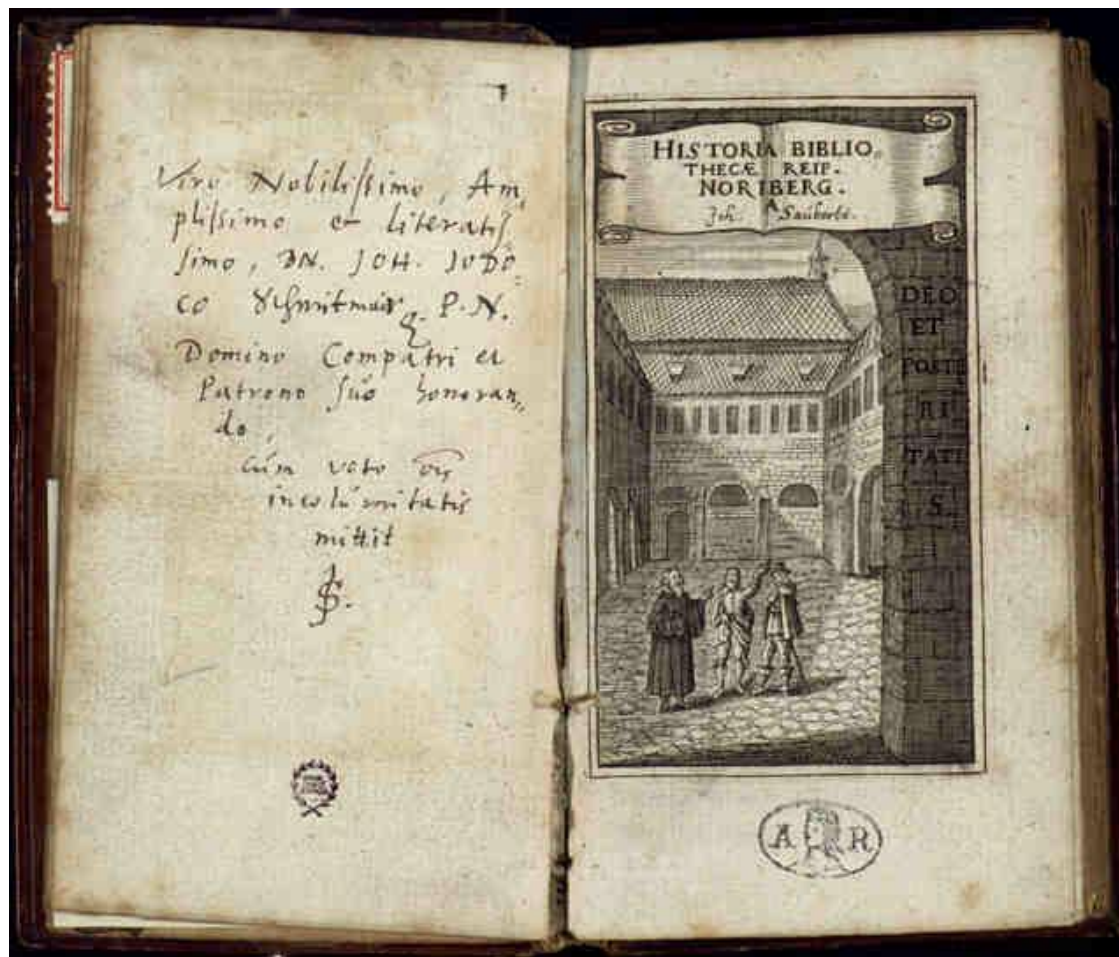 Viro Nobilissimo, Am„
plissimo et literatis
simo, DN. JOH. JODO
CO Schmitmair P. N.
Domino Compatri et
Patrono suo honoran„
do,
cum voto o͞is
incolumitatis
mittit
JS.
HISTORIA BIBLIO„
THECÆ REIP.
NORIBERG.
Joh. Sauberte.
DEO
ET
POSTE
RI
TATI
S.
A R